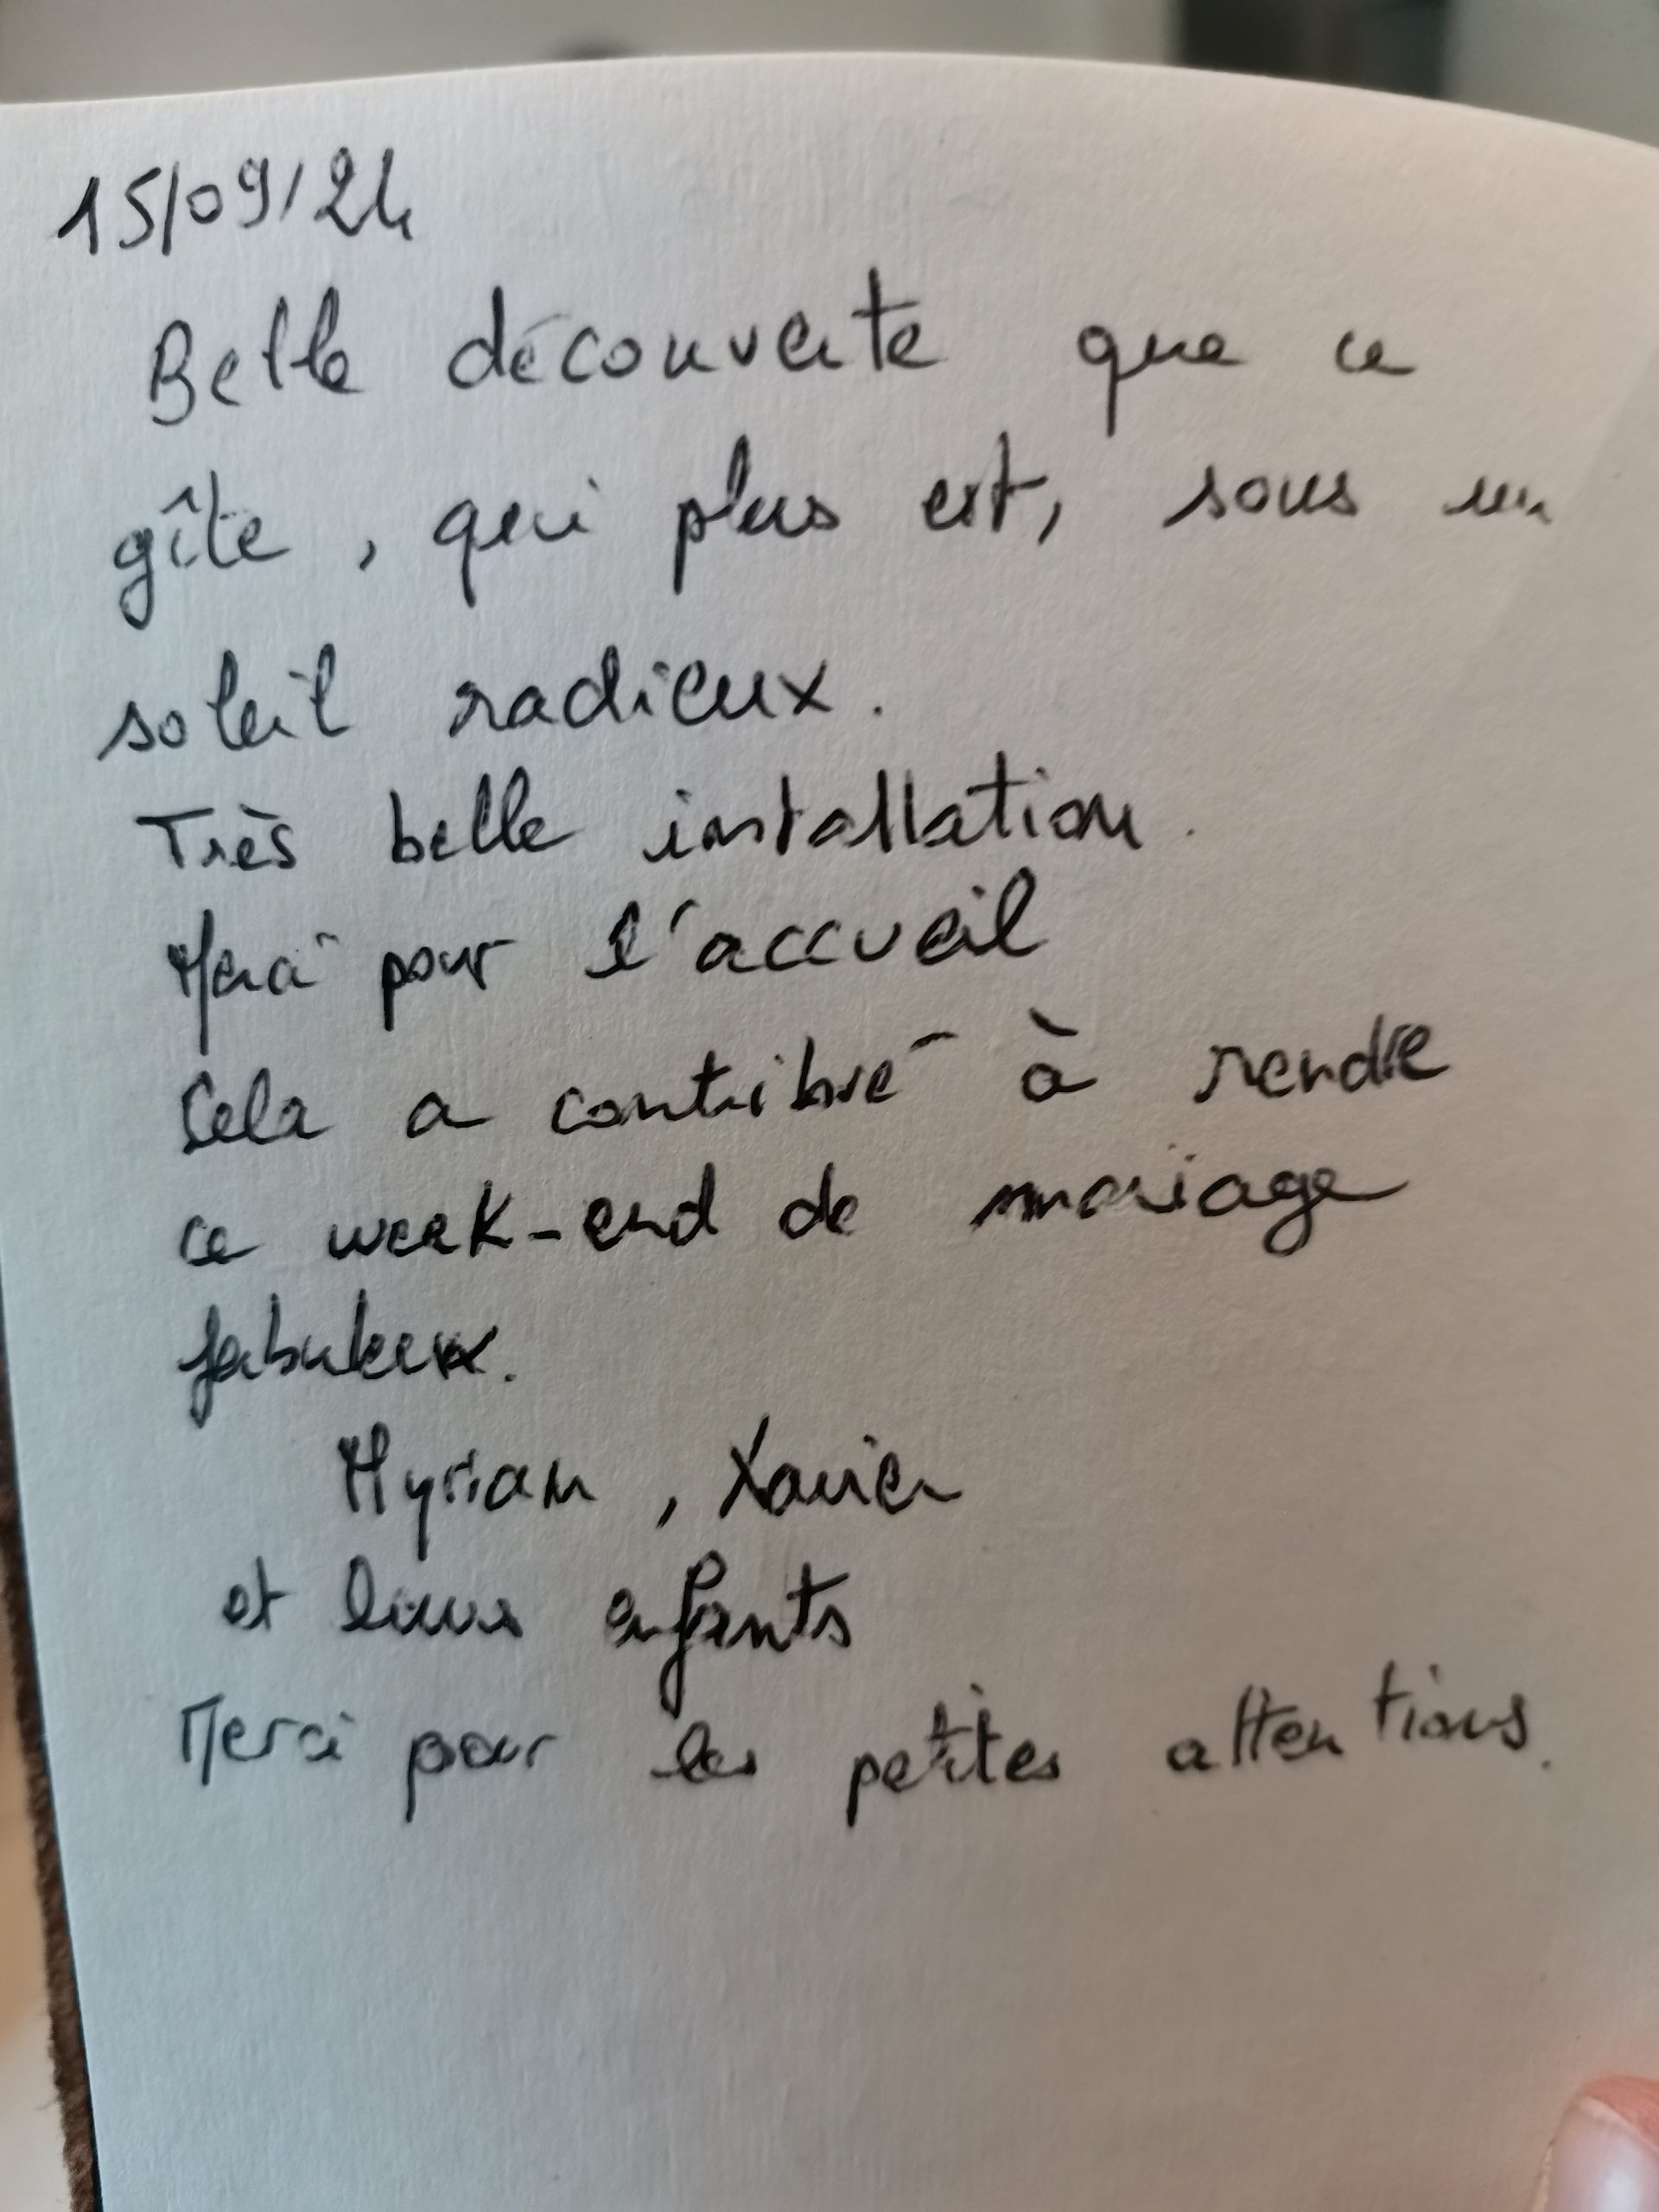 15/09/24
Belle découverte que ce
gîte, qui plus est, sous un
soleil radieux.
Très belle installation.
Merci pour l'accueil
Cela a contribué à rendre
ce week-end de mariage
fabuleux.
Myriam, Xavier
et leurs enfants
Merci pour les petites attentions.